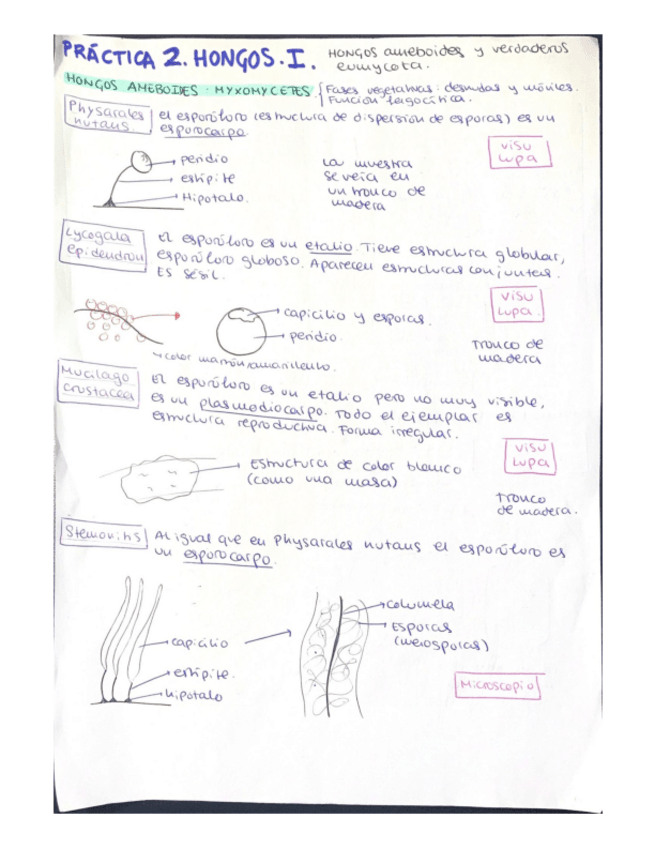 PRÁCTICA 2. HONGOS. I. HONGOS ameboides y verdaderos
eumycota.
HONGOS AMEBOIDES: MYXOMYCETES { Fases vegetativas: desnudas y móviles.
Función fagocítica.
Physarales
nutans
el esporóforo (estructura de dispersión de esporas) es un
esporocarpo.
visu
lupa
peridio
estípite
Hipotalo.
La muestra
se veía en
un tronco de
madera
Lycogala
epidendron
El esporóforo es un etalio. Tiene estructura globular,
esporóforo globoso. Aparecen estructuras conjuntas.
Es sésil.
visu
lupa.
capicilio y esporas.
peridio.
color marrón/amarillento.
tronco de
madera
Mucilago
crustacea
El esporóforo es un etalio pero no muy visible,
es un plasmodiocarpo. Todo el ejemplar es
estructura reproductiva. Forma irregular.
visu
lupa
Estructura de color blanco
(como una masa)
tronco
de madera.
Stemonitis
Al igual que en Physarales nutans el esporóforo es
un esporocarpo.
capicilio
estípite.
hipotalo
columela
Esporas
(meiosporas)
Microscopio